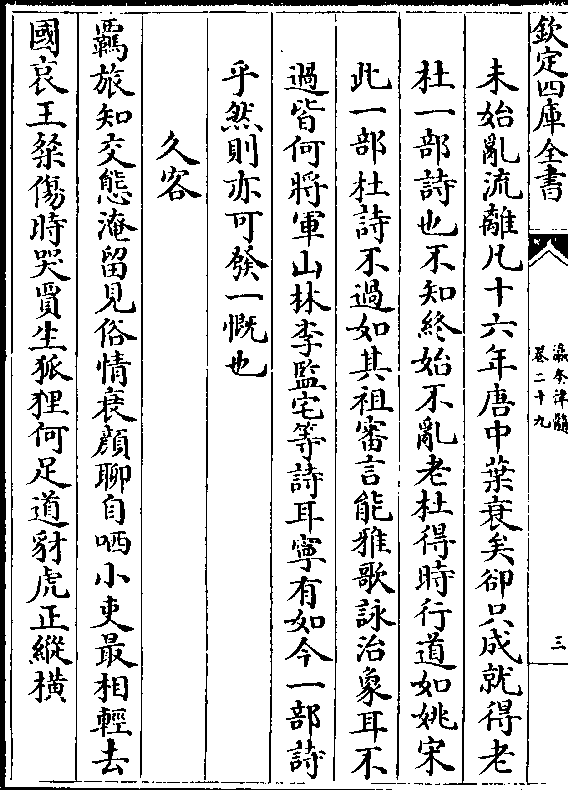 欽定四庫全書
瀛奎律髓
卷二十九
三
未始亂流離凡十六年唐中葉衰矣卻只成就得老
杜一部詩也不知終始不亂老杜得時行道如姚宋
此一部杜詩不過如其祖審言能雅歌詠治象耳不
過皆何將軍山林李監宅等詩耳寧有如今一部詩
乎然則亦可發一慨也
久客
羈旅知交態淹留見俗情衰顏聊自哂小吏最相輕去
國哀王粲傷時哭賈生狐狸何足道豺虎正縱橫